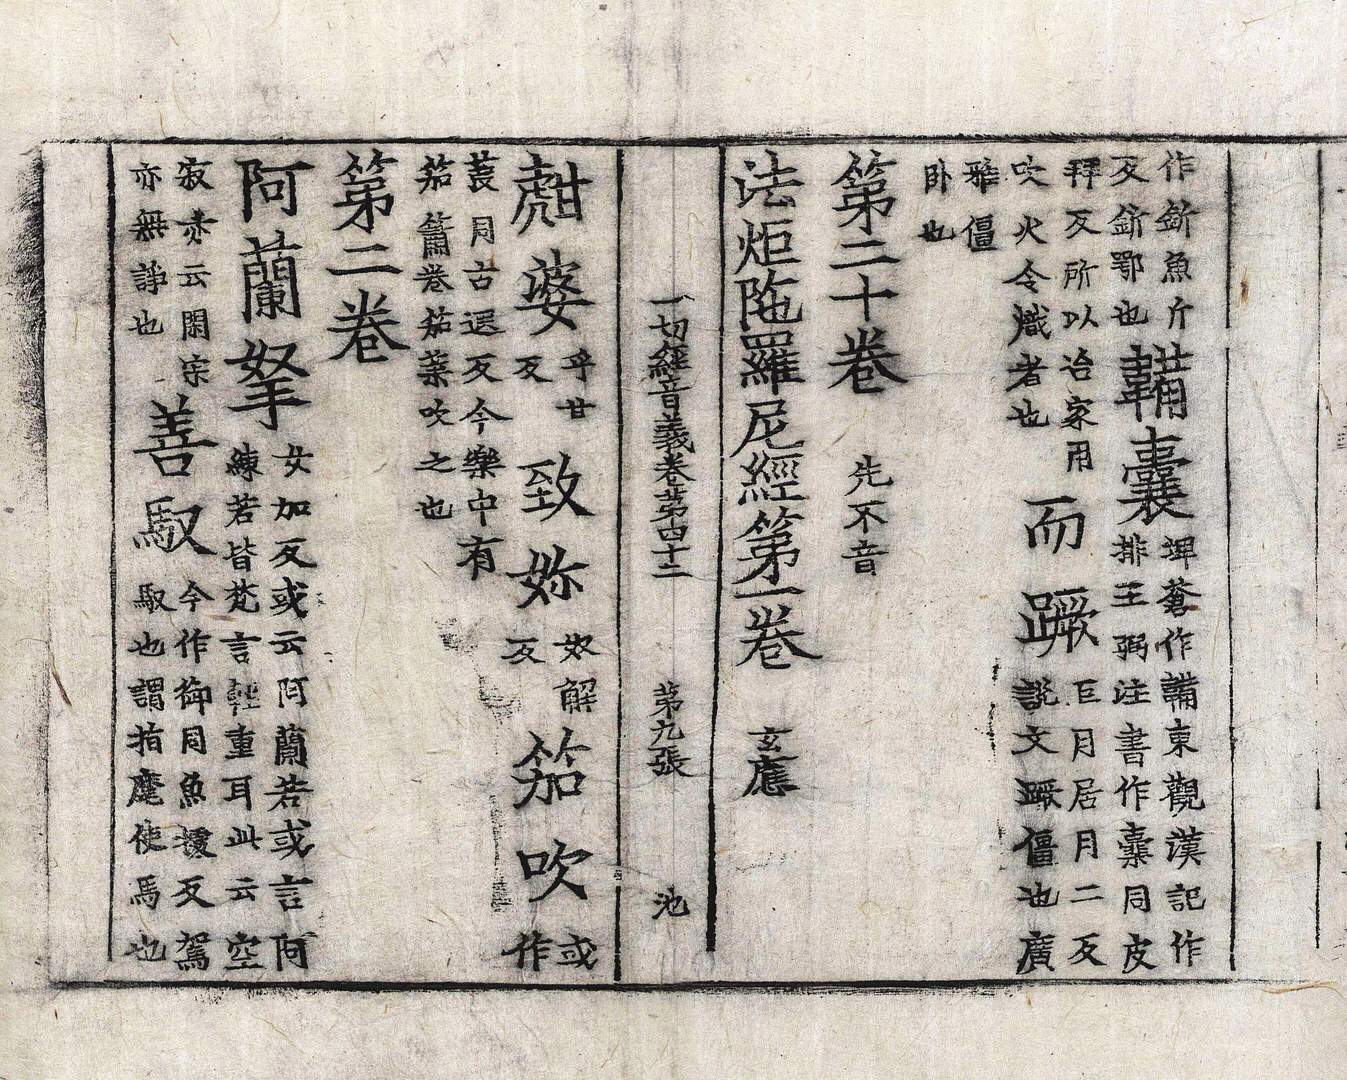 作齗魚斤反齗鄂也鞴囊埤蒼作鞴東觀漢記作排王弼注書作橐同皮
拜反所以冶家用吹火令熾者也而蹶巨月居月二反說文蹶僵也廣
雅僵卧也
第二十卷 先不音
法炬陁羅尼經第一卷 玄應
一切經音義卷第四十二 第九張 池
甝婆乎甘反致妳奴解反笳吹或作
葭同古遐反今樂中有笳簫卷笳葉吹之也
第二卷
阿蘭拏女加反或云阿蘭若或言阿練若皆梵言輕重耳此云空
寂亦云閑宋亦無諍也善馭今作御同魚據反駕馭也謂指麾使馬也